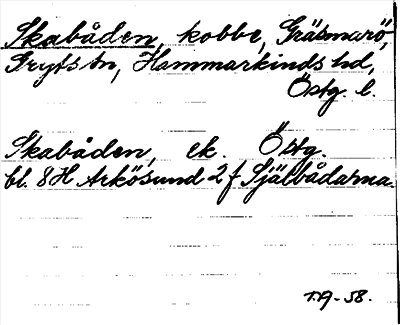 Skabåden, kobbe, Gräsmarö,
Gryts sn, Hammarkinds hd,
Östg. l.
Skabåden, ek. Östg.
bl. 8H Arkösund 2 f Själbådarna.
T.A-58.